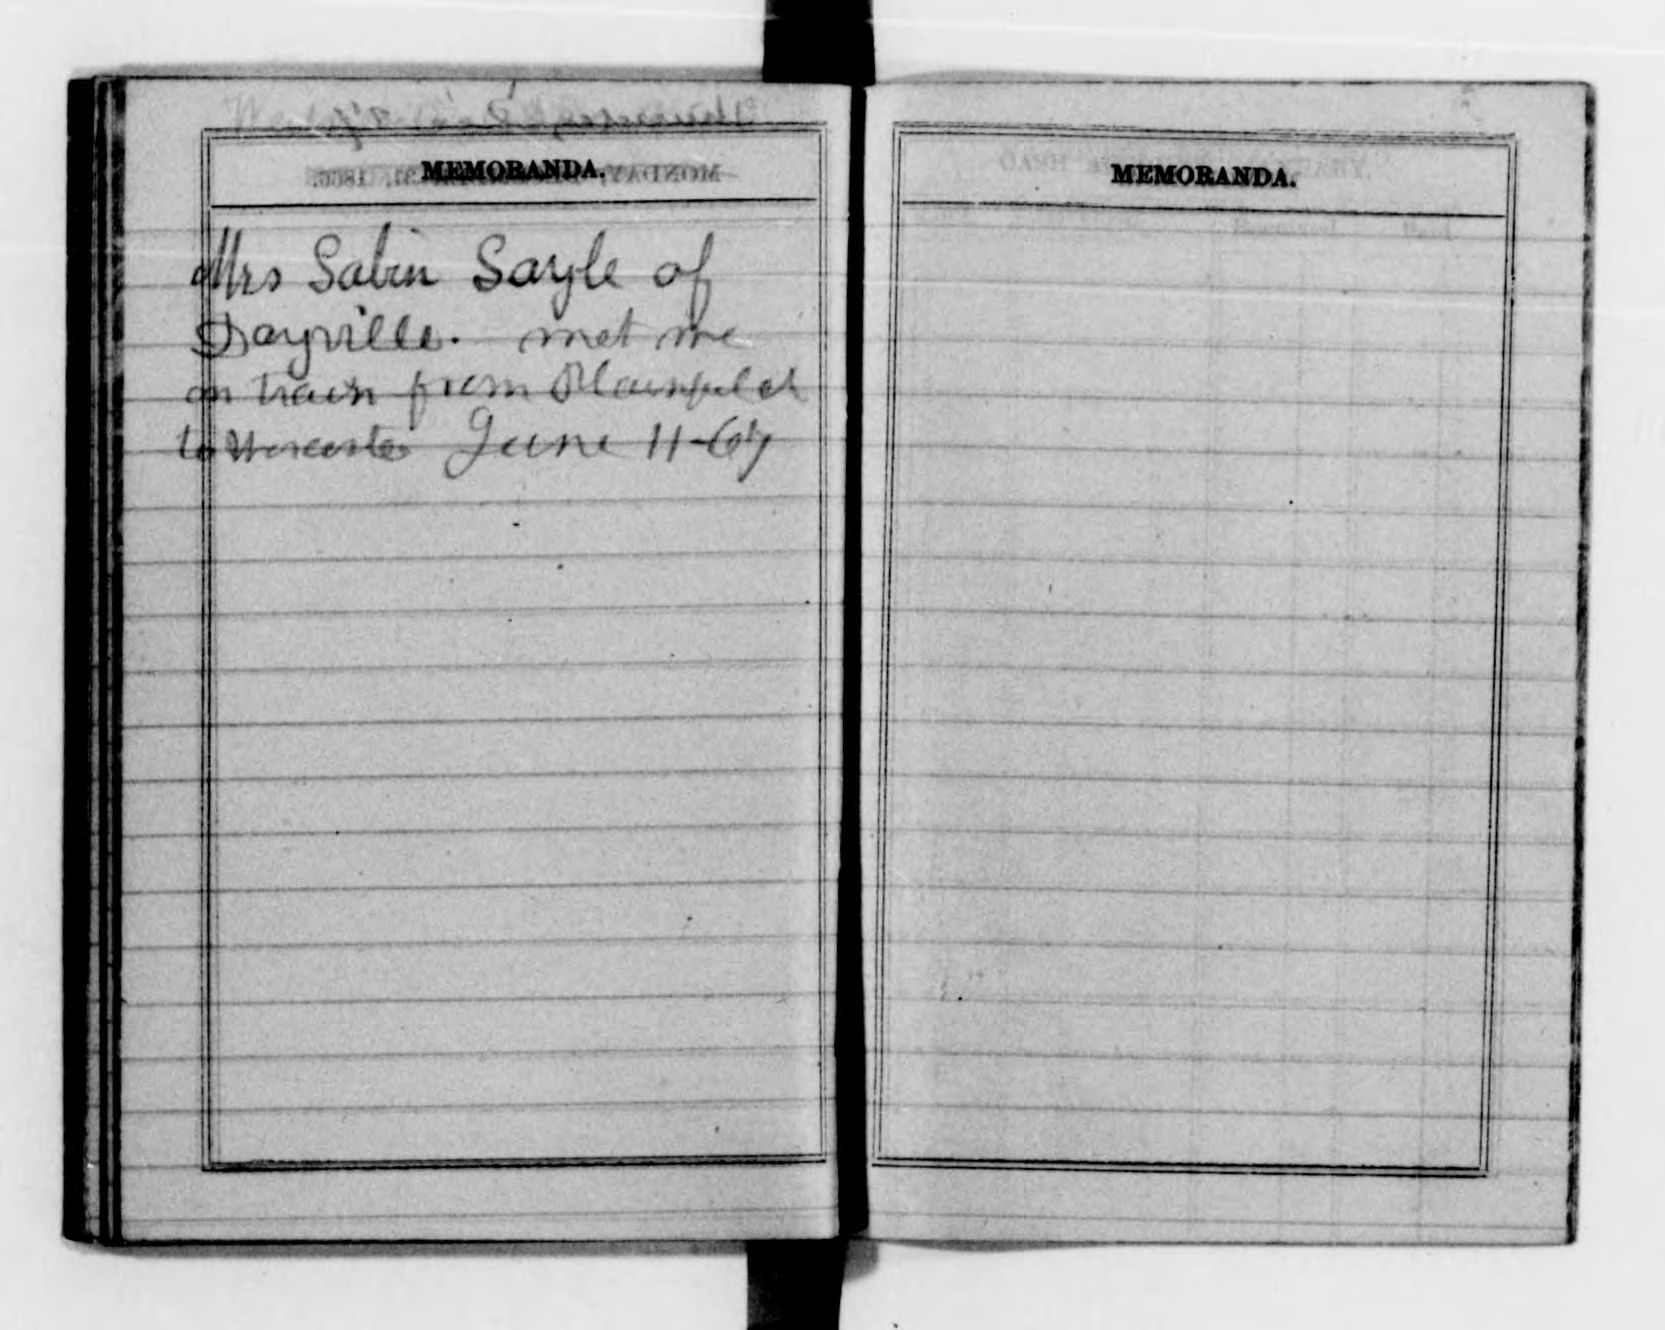 MEMORANDA.
Mrs Sabin Sayle of
Dayville. met me
on train from Plainfield
to Worcester June 11-67
MEMORANDA.